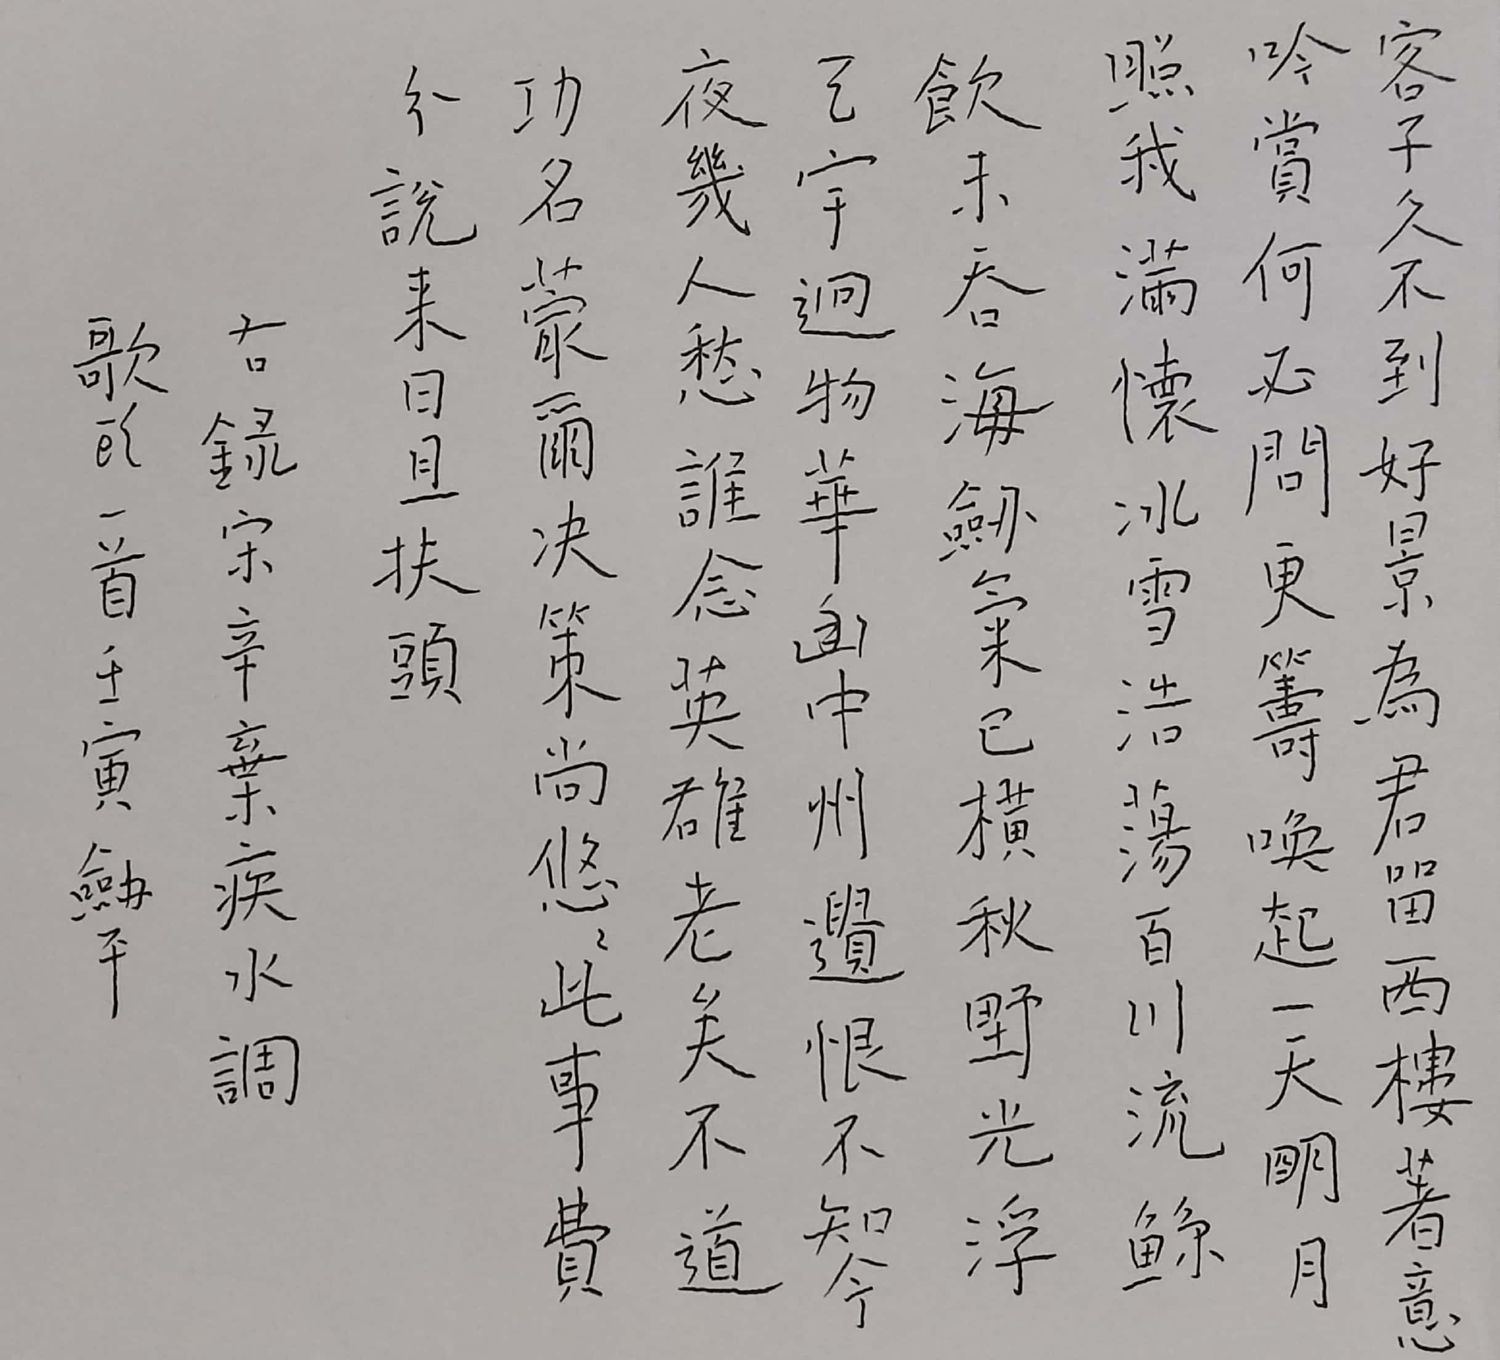 客子久不到好景為君畱西樓著意
吟賞何必問更籌喚起一天明月
照我滿懷冰雪浩蕩百川流鯨
飲未吞海劔氣已橫秋野光浮
天宇迥物華幽中州遺恨不知今
夜幾人愁誰念英雄老矣不道
功名蕞爾决策尚悠〻此事費
分說来日且扶頭
右録宋辛棄疾水調
歌頭一首壬寅劔平